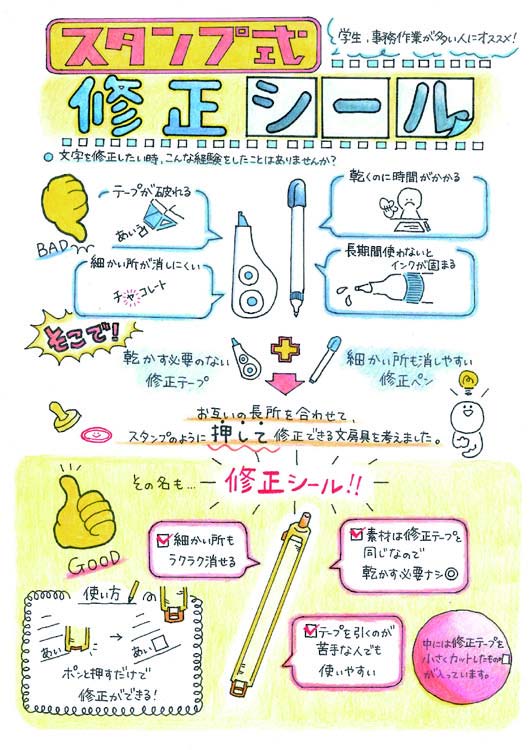 スタンプ式
学生、事務作業が多い人にオススメ!
修正シール
文字を修正したい時、こんな経験をしたことはありませんか?
BAD
テープが破れる
あいう
乾くのに時間がかかる
細かい所が消しにくい
チョコレート
長期間使わないと
インクが固まる
そこで!
乾かす必要のない
修正テープ
細かい所も消しやすい
修正ペン
お互いの長所を合わせて、
スタンプのように押して修正できる文房具を考えました。
その名も…
修正シール!!
GOOD
細かい所も
ラクラク消せる
素材は修正テープと
同じなので
乾かす必要ナシ◎
使い方
あい
あい
ポンと押すだけで
修正ができる!
テープを引くのが
苦手な人でも
使いやすい
中には修正テープを
小さくカットしたもの
が入っています。